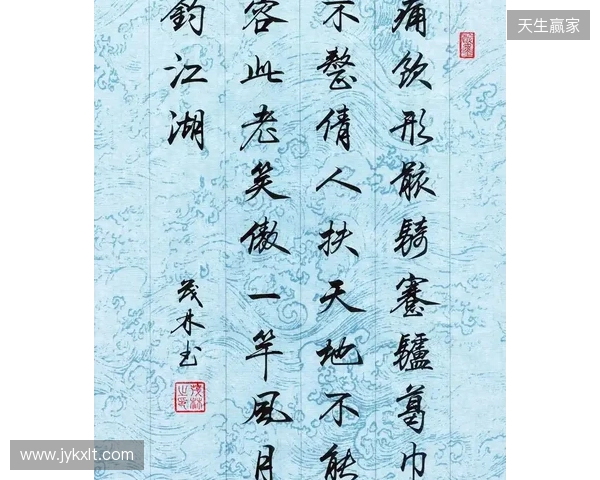 天生赢家
痛飲形骸騎蹇驢葛巾
不整倩人扶天地不能
容此老笑傲一竿風月
釣江湖
茂林书
www.jykxlt.com